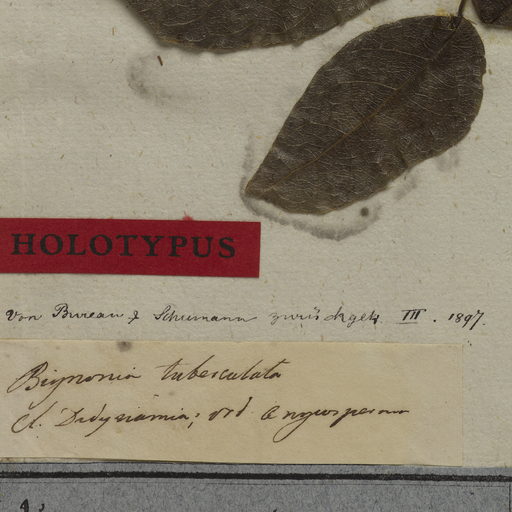 HOLOTYPUS
Von Bureau & Schumann zurückgek. III. 1897.
Bignonia tuberculata
cl. Didynamia; ord Angiosperma
4,